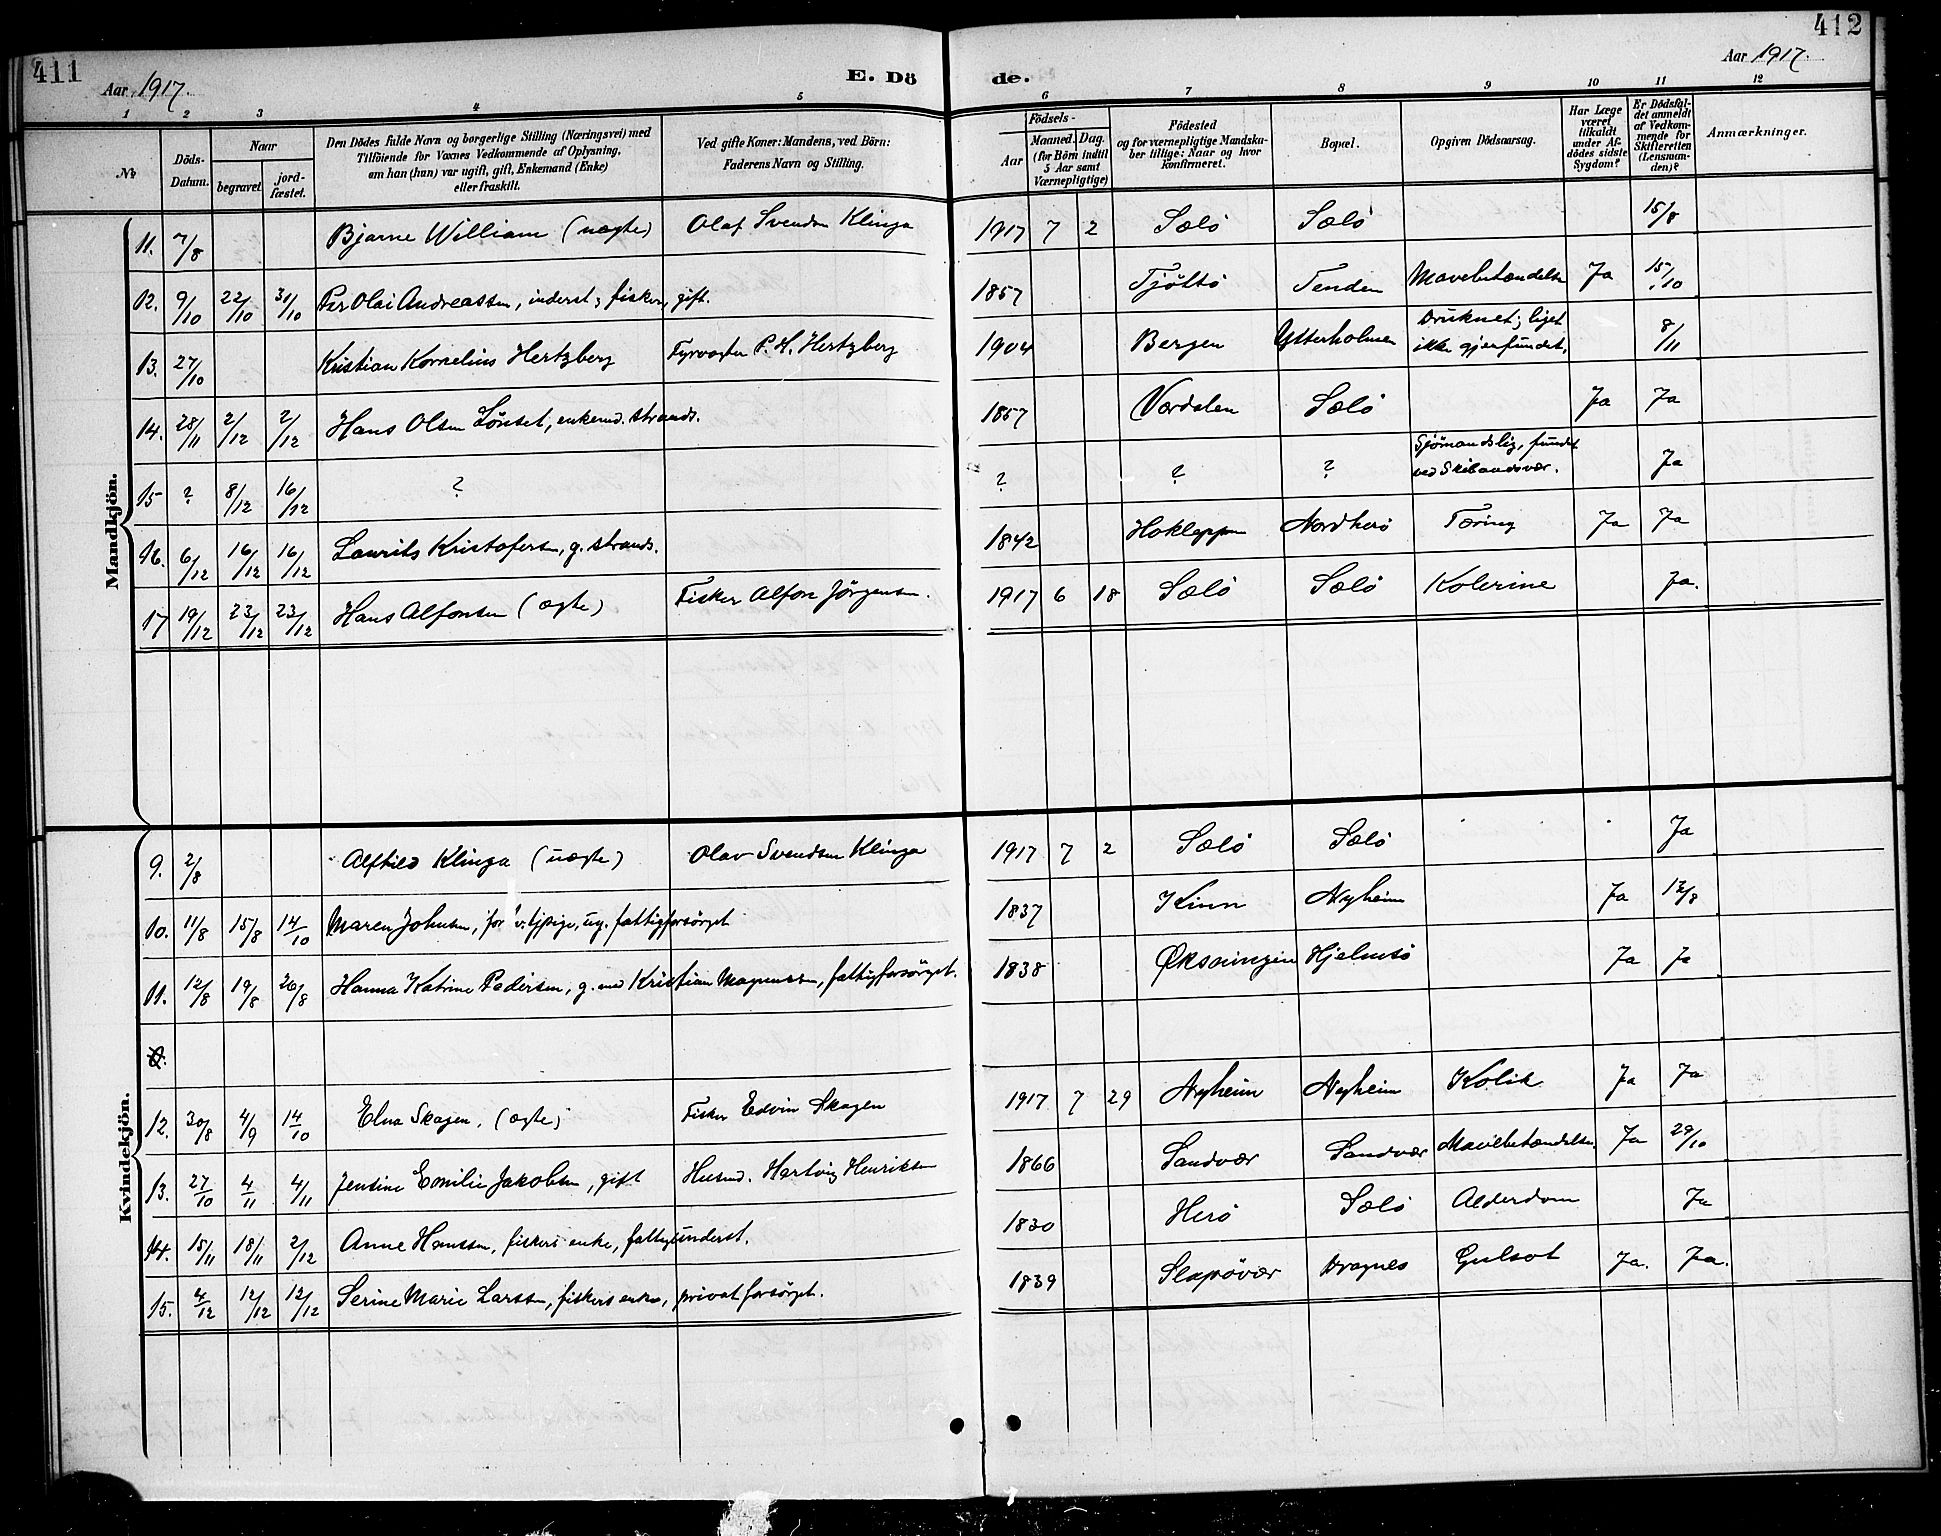 411
412
Aar 1917.
E. Dö
de.
Aar 1917.
1 2 3 4 5 6 7 8 9 10 11 12
No
Döds-Datum.
Naar
begravet.
jord-fæstet.
Den Dödes fulde Navn og borgerlige Stilling (Næringsvei) med
Tilföiende for Voxnes Vedkommende af Oplysning,
om han (hun) var ugift, gift, Enkemand (Enke)
eller fraskilt.
Ved gifte Koner: Mandens, ved Börn:
Faderens Navn og Stilling.
Födsels-
Aar
Maaned. Dag.
(for Börn indtil
5 Aar samt
Værnepligtige)
Födested
og for værnepligtige Mandska-
ber tillige: Naar og hvor
konfirmeret.
Bopæl.
Opgiven Dödsaarsag.
Har Læge
været
tilkaldt
under Af-
dödes sidste
Sygdom?
Er Dödsfal-
det anmeldt
af Vedkom-
mende for
Skifteretten
(Lensman-
den)?
Anmærkninger.
Mandkjön.
11. 7/8 Bjarne William (uægte) Olaf Svendsen Klinga 1917 7 2 Sælö Sælö 15/8
12. 9/10 22/10 31/10 Per Olai Andreassen, inderst, fisker, gift. 1857 Tjöttö Tenden Mavebetændelse Ja 15/10
13. 27/10 Kristian Kornelius Hertzberg Fyrvogter P. H. Hertzberg 1904 Bergen Ytterholmen Druknet; liget
ikke gjenfundet. 8/11
14. 28/11 2/12 2/12 Hans Olsen Lönset, enkemd. strands. 1857 Værdalen Sælö Ja Ja
15 ? 8/12 16/12 ? ? ? ? Sjömandslig, fundet
ved Skibaadsvær. Ja
16. 6/12 16/12 16/12 Laurits Kristofersen, g. strands. 1842 Hokleppen Nordherö Tæring Ja Ja
17 19/12 23/12 23/12 Hans Alfonsen (ægte) Fisker Alfon Jörgensen. 1917 6 18 Sælö Sælö Kolerine Ja.
Kvindekjön.
9. 2/8 Alfhild Klinga (uægte) Olav Svendsen Klinga 1917 7 2 Sælö Sælö Ja
10. 11/8 15/8 14/10 Maren Johnsen, for v. tjpige, ug. fattigforsörget 1837 Kinn Nyheim Ja 13/8
11. 12/8 19/8 26/8 Hanna Katrine Pedersen, g. med Kristian Magnussen, fattigforsörget. 1838 Öksningen Hjelmsö Ja Ja
12. 30/8 4/9 14/10 Elna Skagen, (ægte) Fisker Edvin Skagen 1917 7 29 Nyheim Nyheim Kolik Ja Ja
13. 27/10 4/11 4/11 Jensine Emilie Jakobsen, gift Husmd. Hartvig Henriksen 1866 Sandvær Sandvær Mavebetændelse Ja 29/10
14. 15/11 18/11 2/12 Anne Hanssen, fiskers enke, fattigunderst. 1830 Herö Sælö Alderdom Ja
15. 4/12 12/12 12/12 Serine Marie Larssen, fiskers enke, privat forsörget. 1839 Slapövær Dragnes Gulsot Ja. Ja.